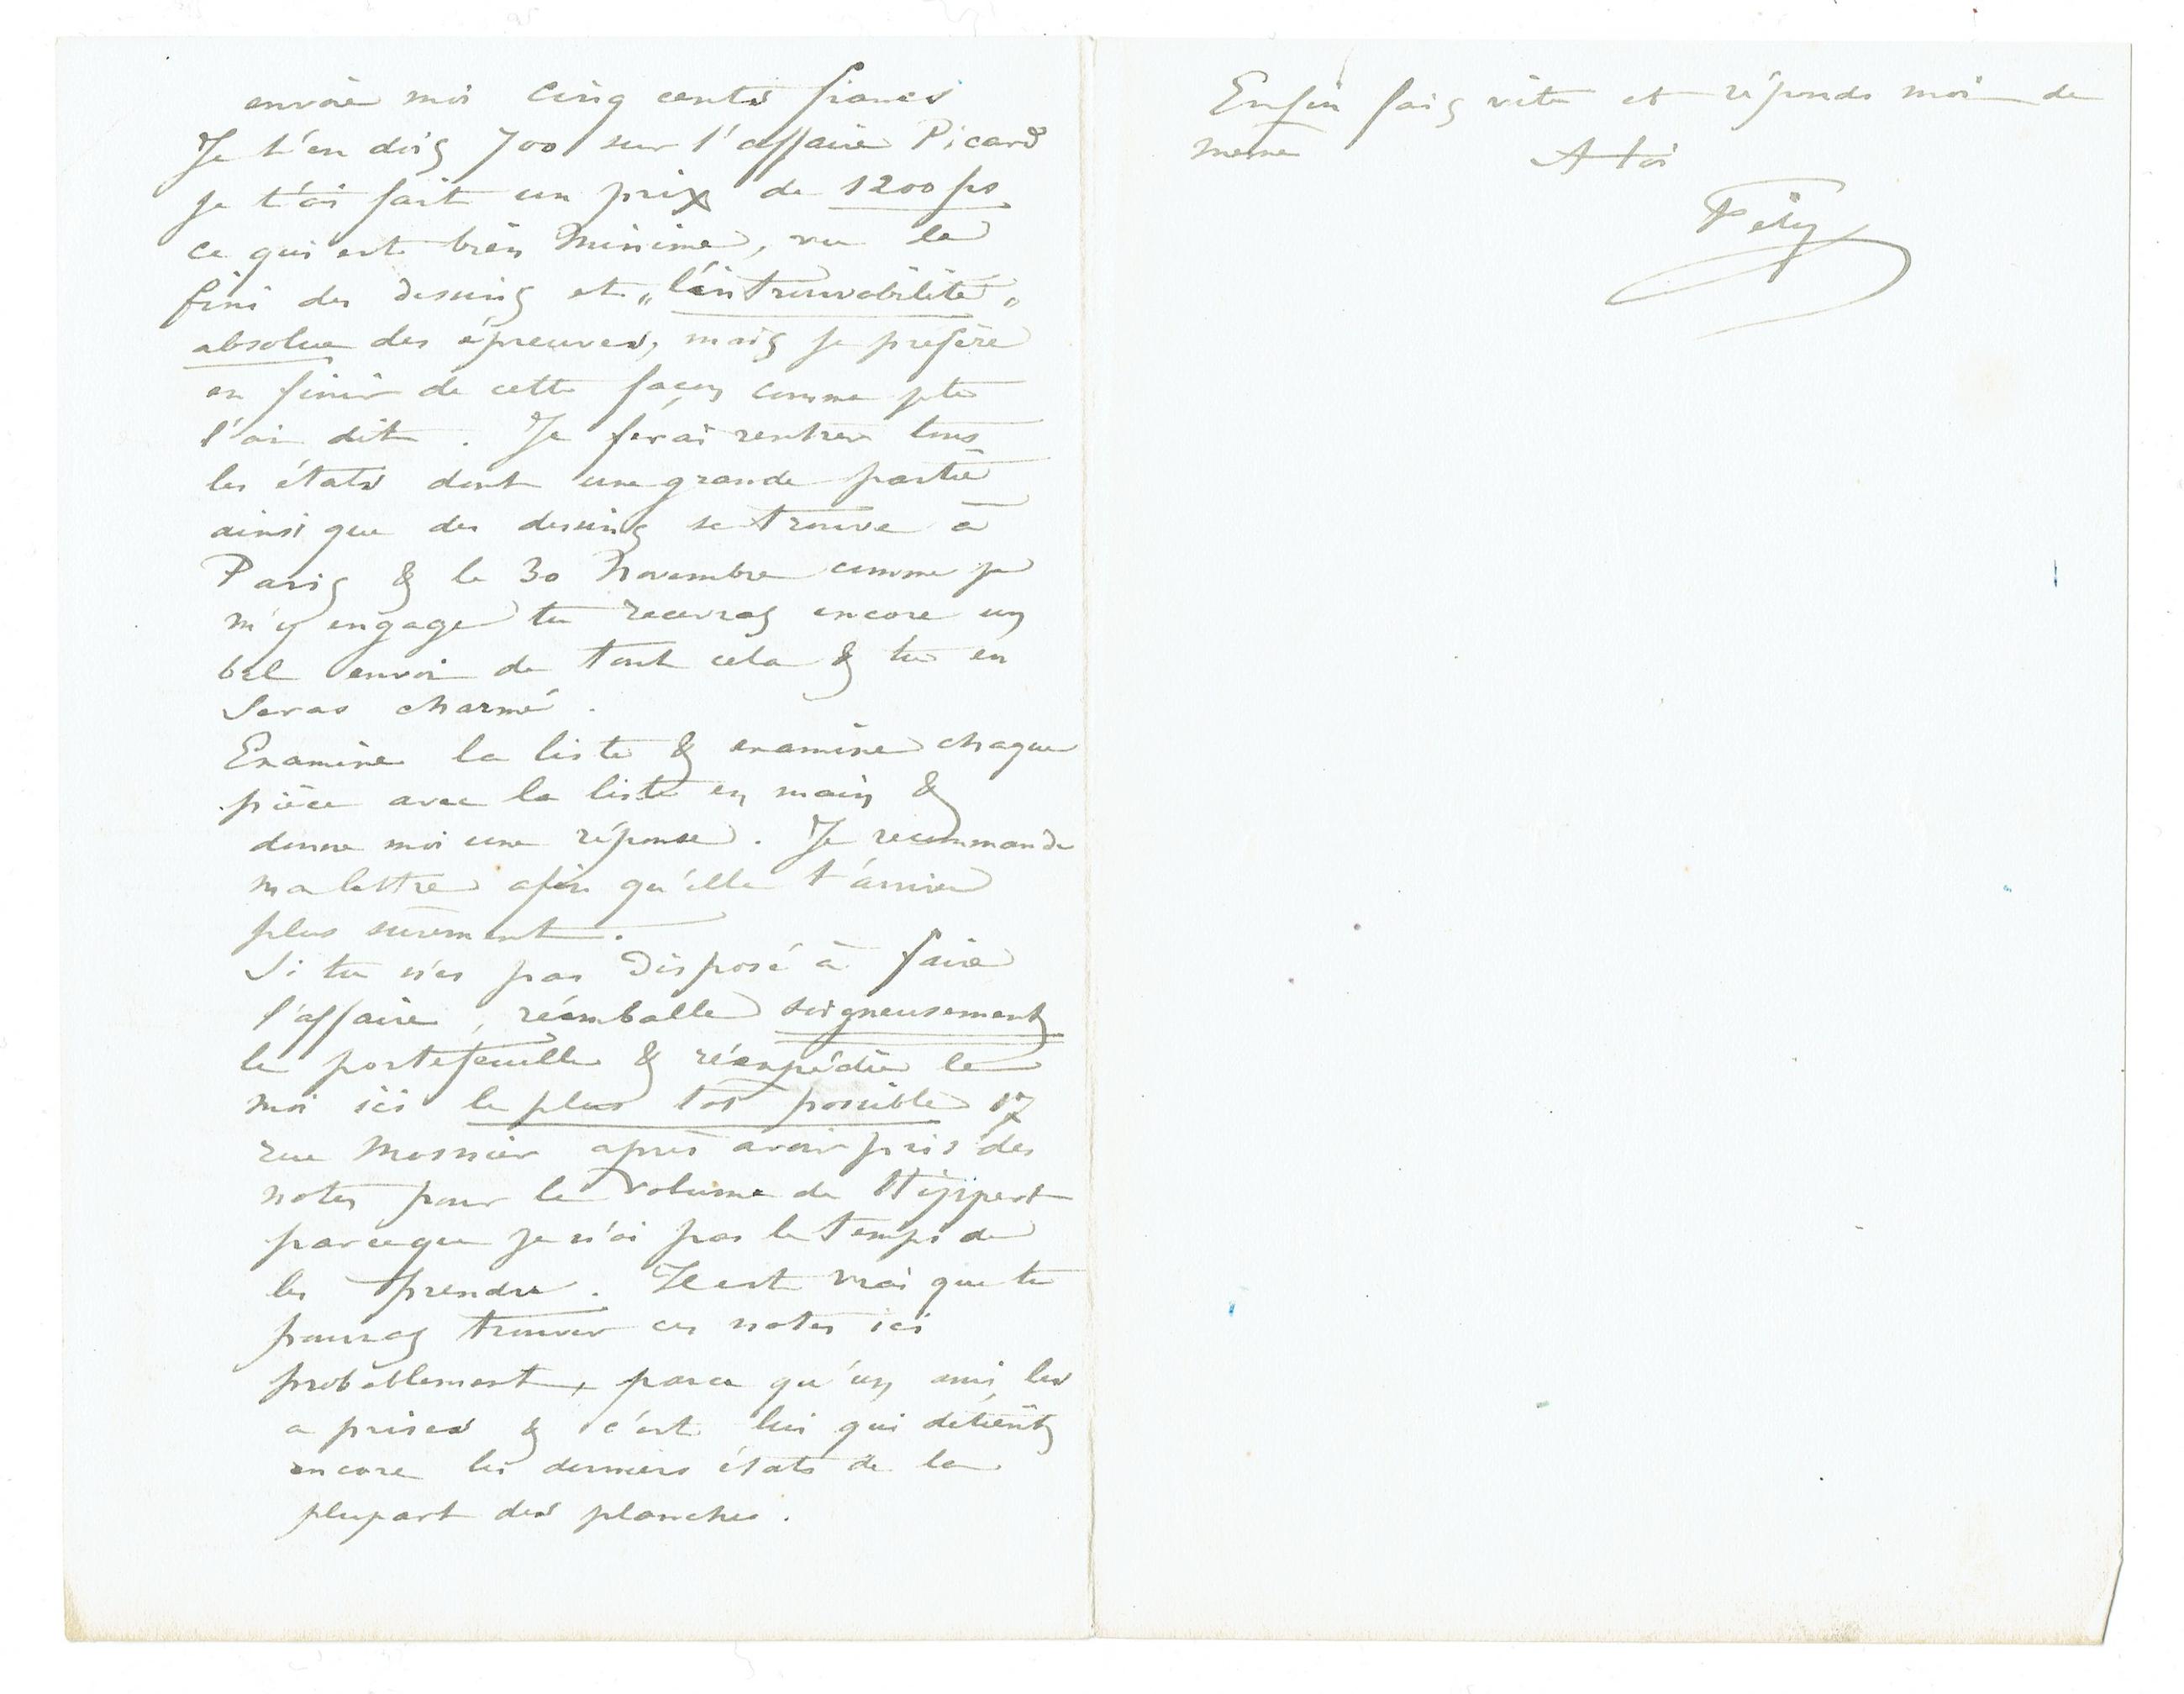 envoie moi cinq cents francs
Je t'en dois 700 sur l'affaire Picard
je t'ai fait un prix de 1200 fs
ce qui est bien minime, vu le
fini des dessins et „l'introuvabilité„
absolue des épreuves, mais je préfère
en finir de cette façon comme je te
l'ai dit. Je ferai rentrer tous
les états dont une grande partie
ainsi que des dessins se trouve à
Paris & le 30 Novembre comme je
m'y engage tu recevras encore un
bel envoi de tout cela & tu en
seras charmé.
Examine la liste & examine chaque
pièce avec la liste en main &
donne moi une réponse. Je recommande
ma lettre afin qu'elle t'arrive
plus surement.
Si tu n'es pas disposé à faire
l'affaire, réemballe soigneusement
le portefeuille & réexpédie le
moi ici le plus tot possible 17
rue Mosnier après avoir pris des
notes pour le volume de
parceque je n'ai pas le temps de
les prendre. Il est vrai que tu
pourras trouver ces notes ici
probablement, parce qu'un ami les
a prises & c'est lui qui détient
encore les derniers états de la
plupart des planches.
Enfin fais vite et réponds moi de
même A toi
Fély